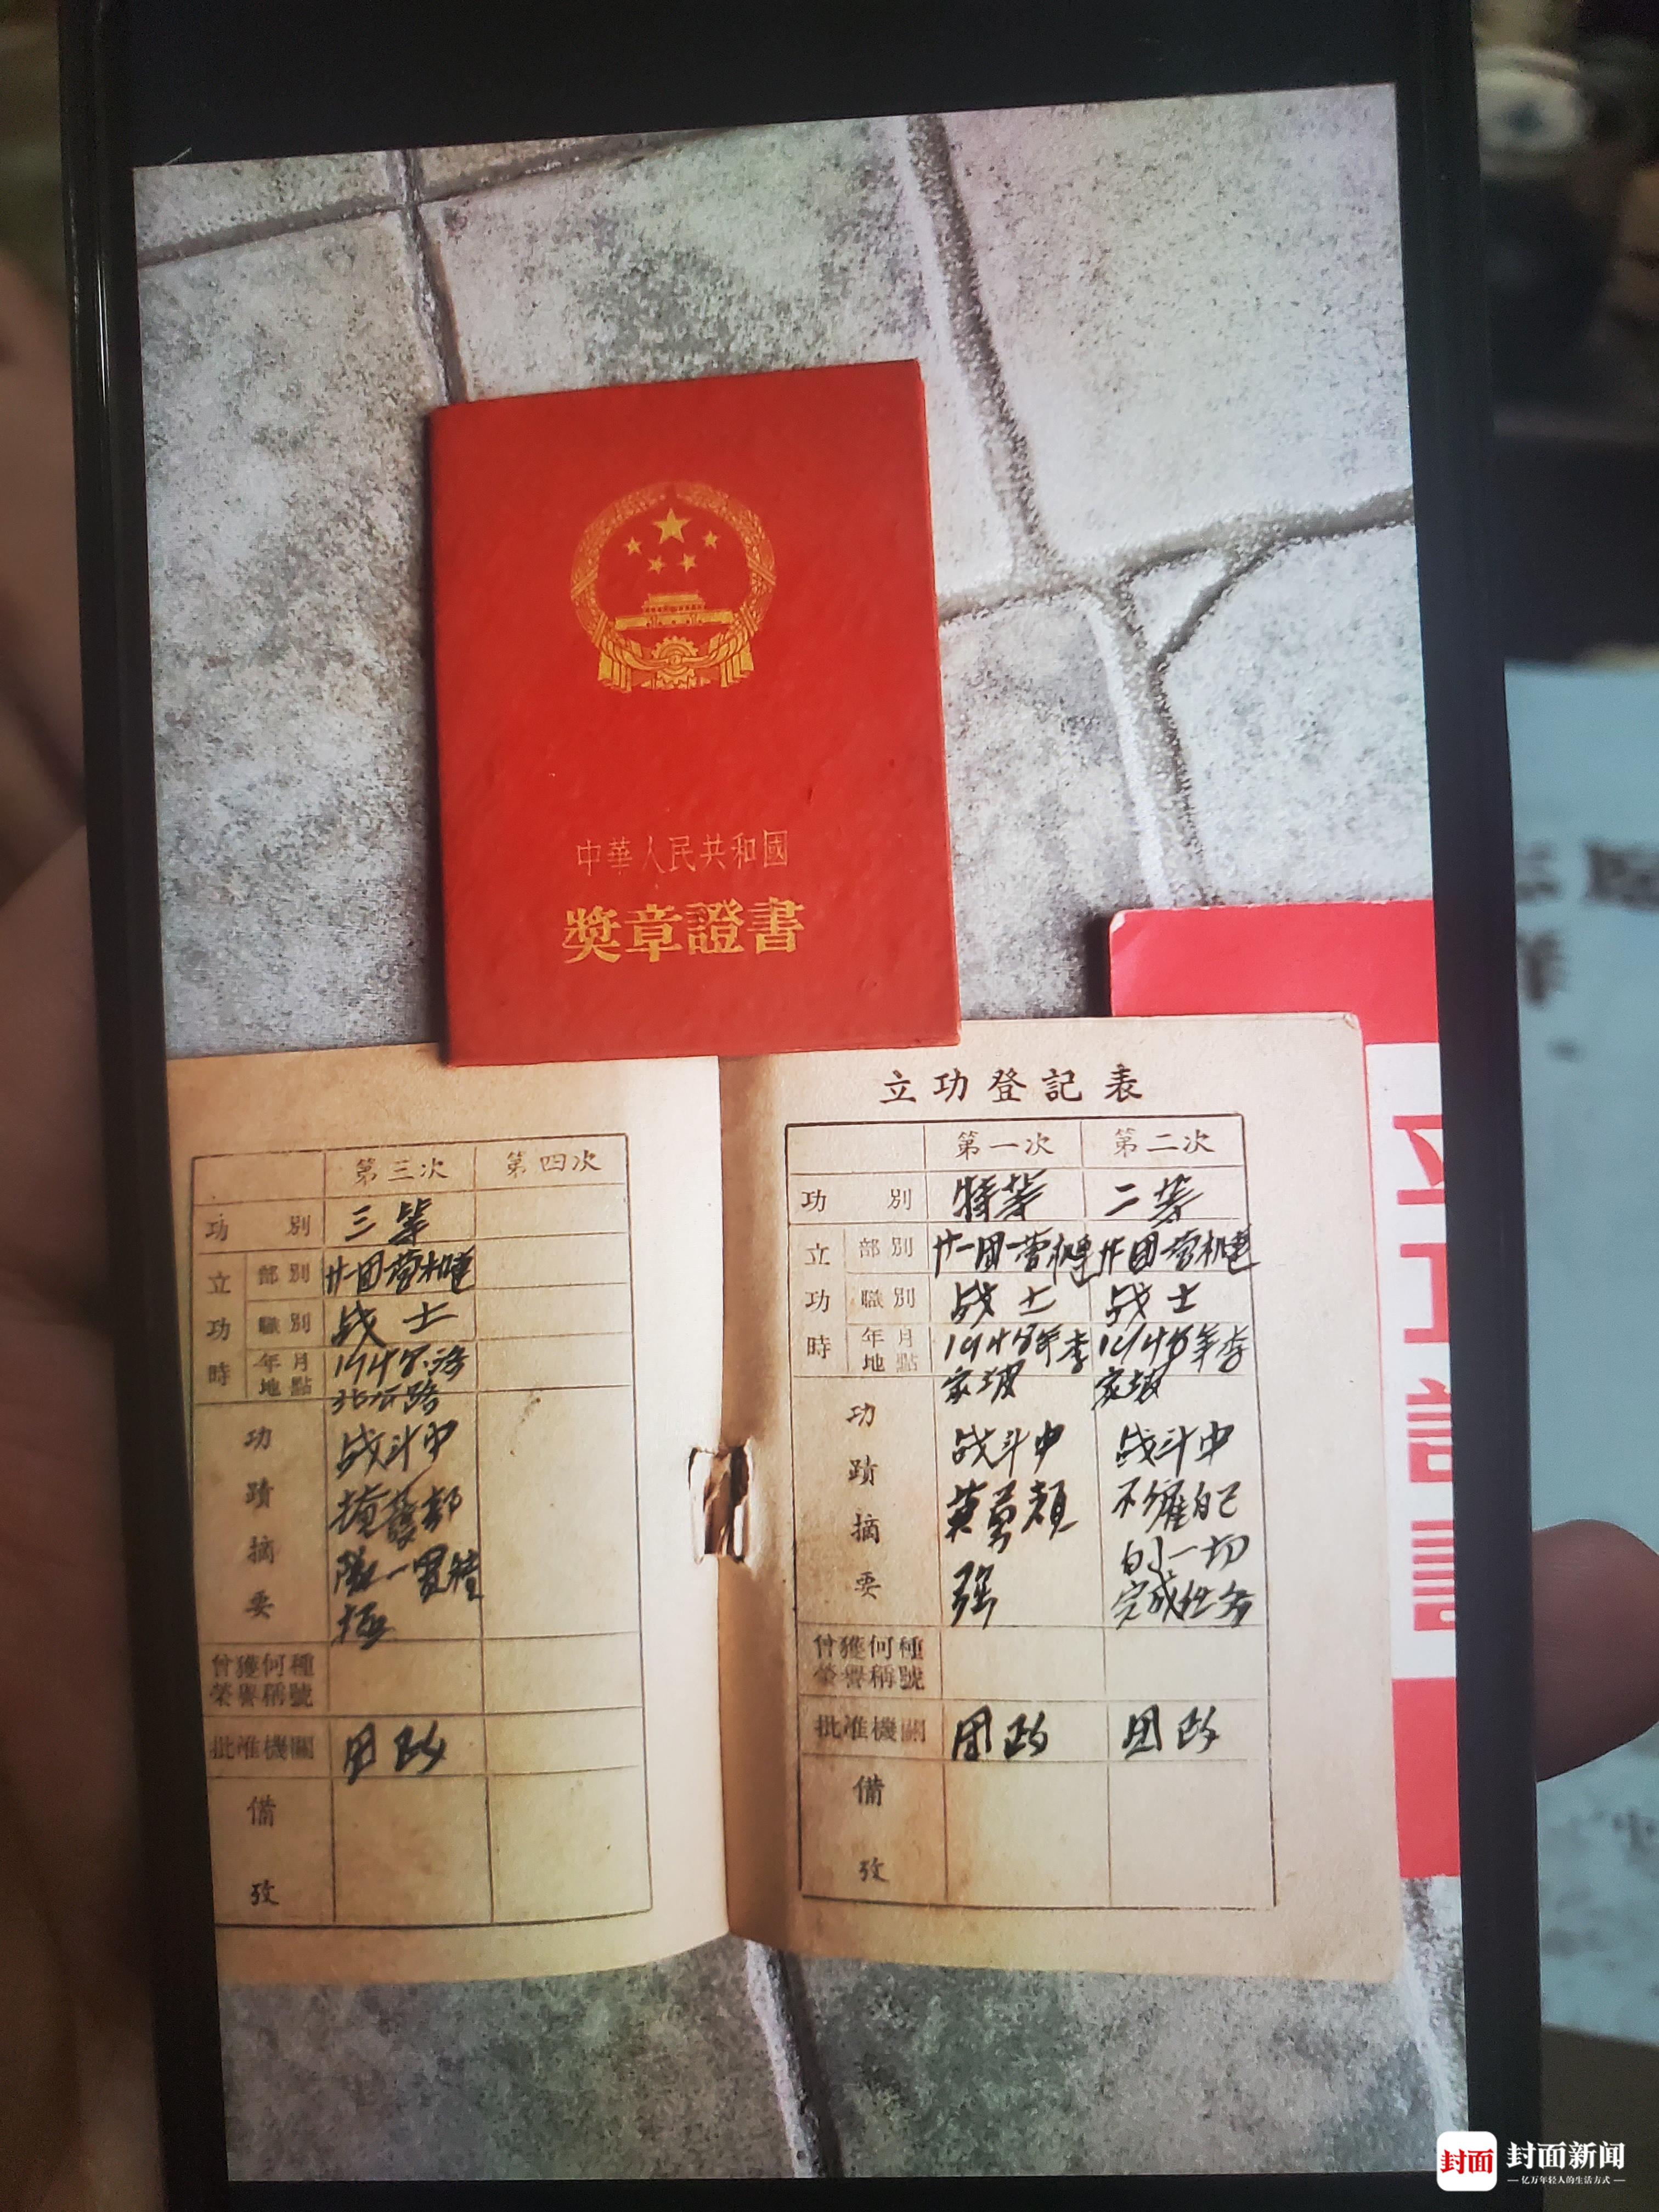 中華人民共和國
獎章證書
立功登記表
第一次 第二次
功別 特等 二等
立功時
部別 廿一团一营机連 廿一团一营机連
職別 战士 战士
年月地點 1948年李家坡 1948年李家坡
功蹟摘要
战斗中 战斗中
英勇頑 不僱自己
强 的一切
完成任务
曾獲何種榮譽稱號
批准機關 团政 团政
備攷
第三次 第四次
功別 三等
立功時
部別 廿一团一营机連
職別 战士
年月地點 1948.洛
北公路
功蹟摘要
战斗中
掩護部
隊一貫積
極
曾獲何種榮譽稱號
批准機關 团政
備攷
立功証
封面
封面新闻
亿万年轻人的生活方式